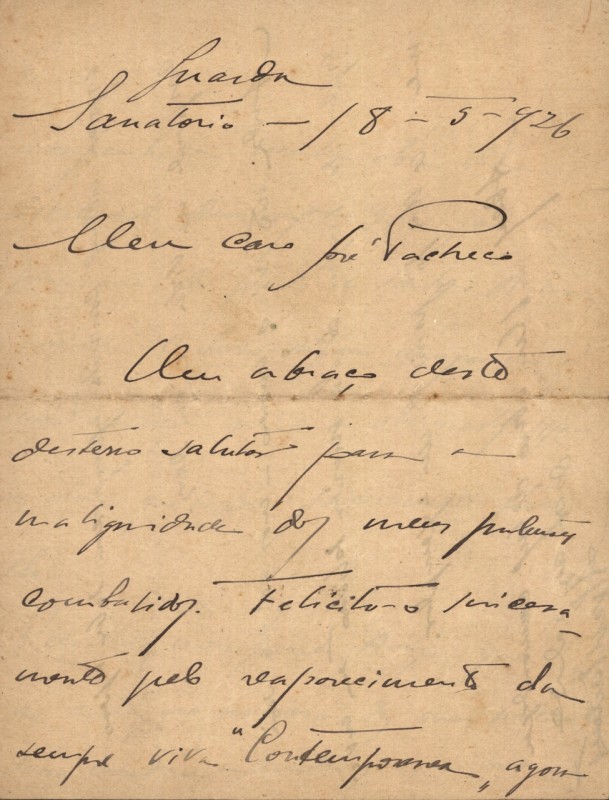 Guarda
Sanatorio - 18 - 5 - 926
Meu caro José Pacheco
Um abraço desto
desterro salutar para a
malignidade dos meus pulmões
combalidos. Felicito-o sincera-
mento pelo reaparecimento da
sempre viva "Contemporanea", agora